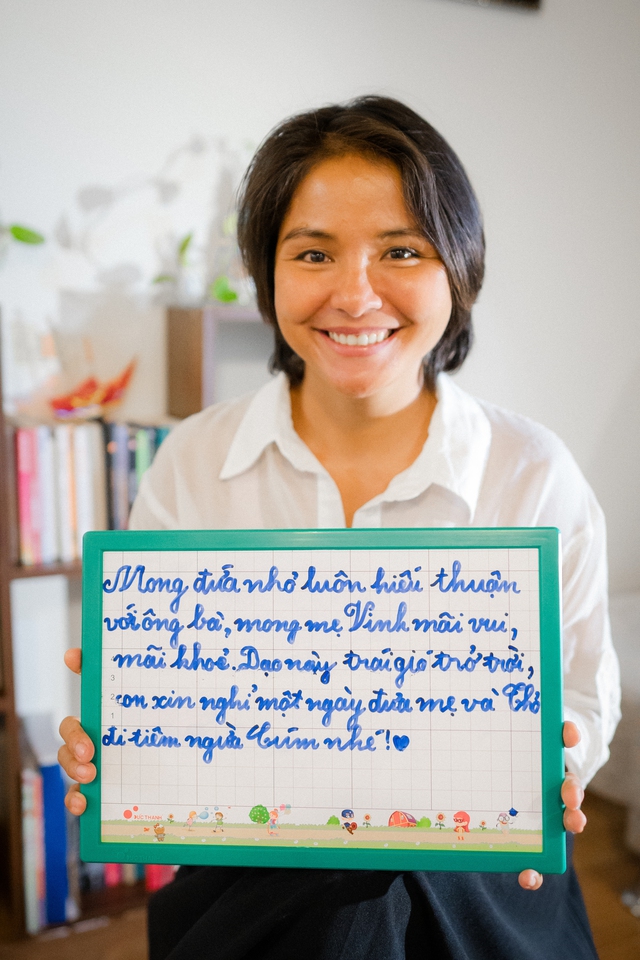 Mong đứa nhỏ luôn hiếu thuận
với ông bà, mong mẹ Vinh mãi vui,
mãi khoẻ. Dạo này trái gió trở trời,
con xin nghỉ một ngày đưa mẹ và Thỏ
đi tiêm ngừa Cúm nhé!
ĐỨC THÀNH
3
2
1